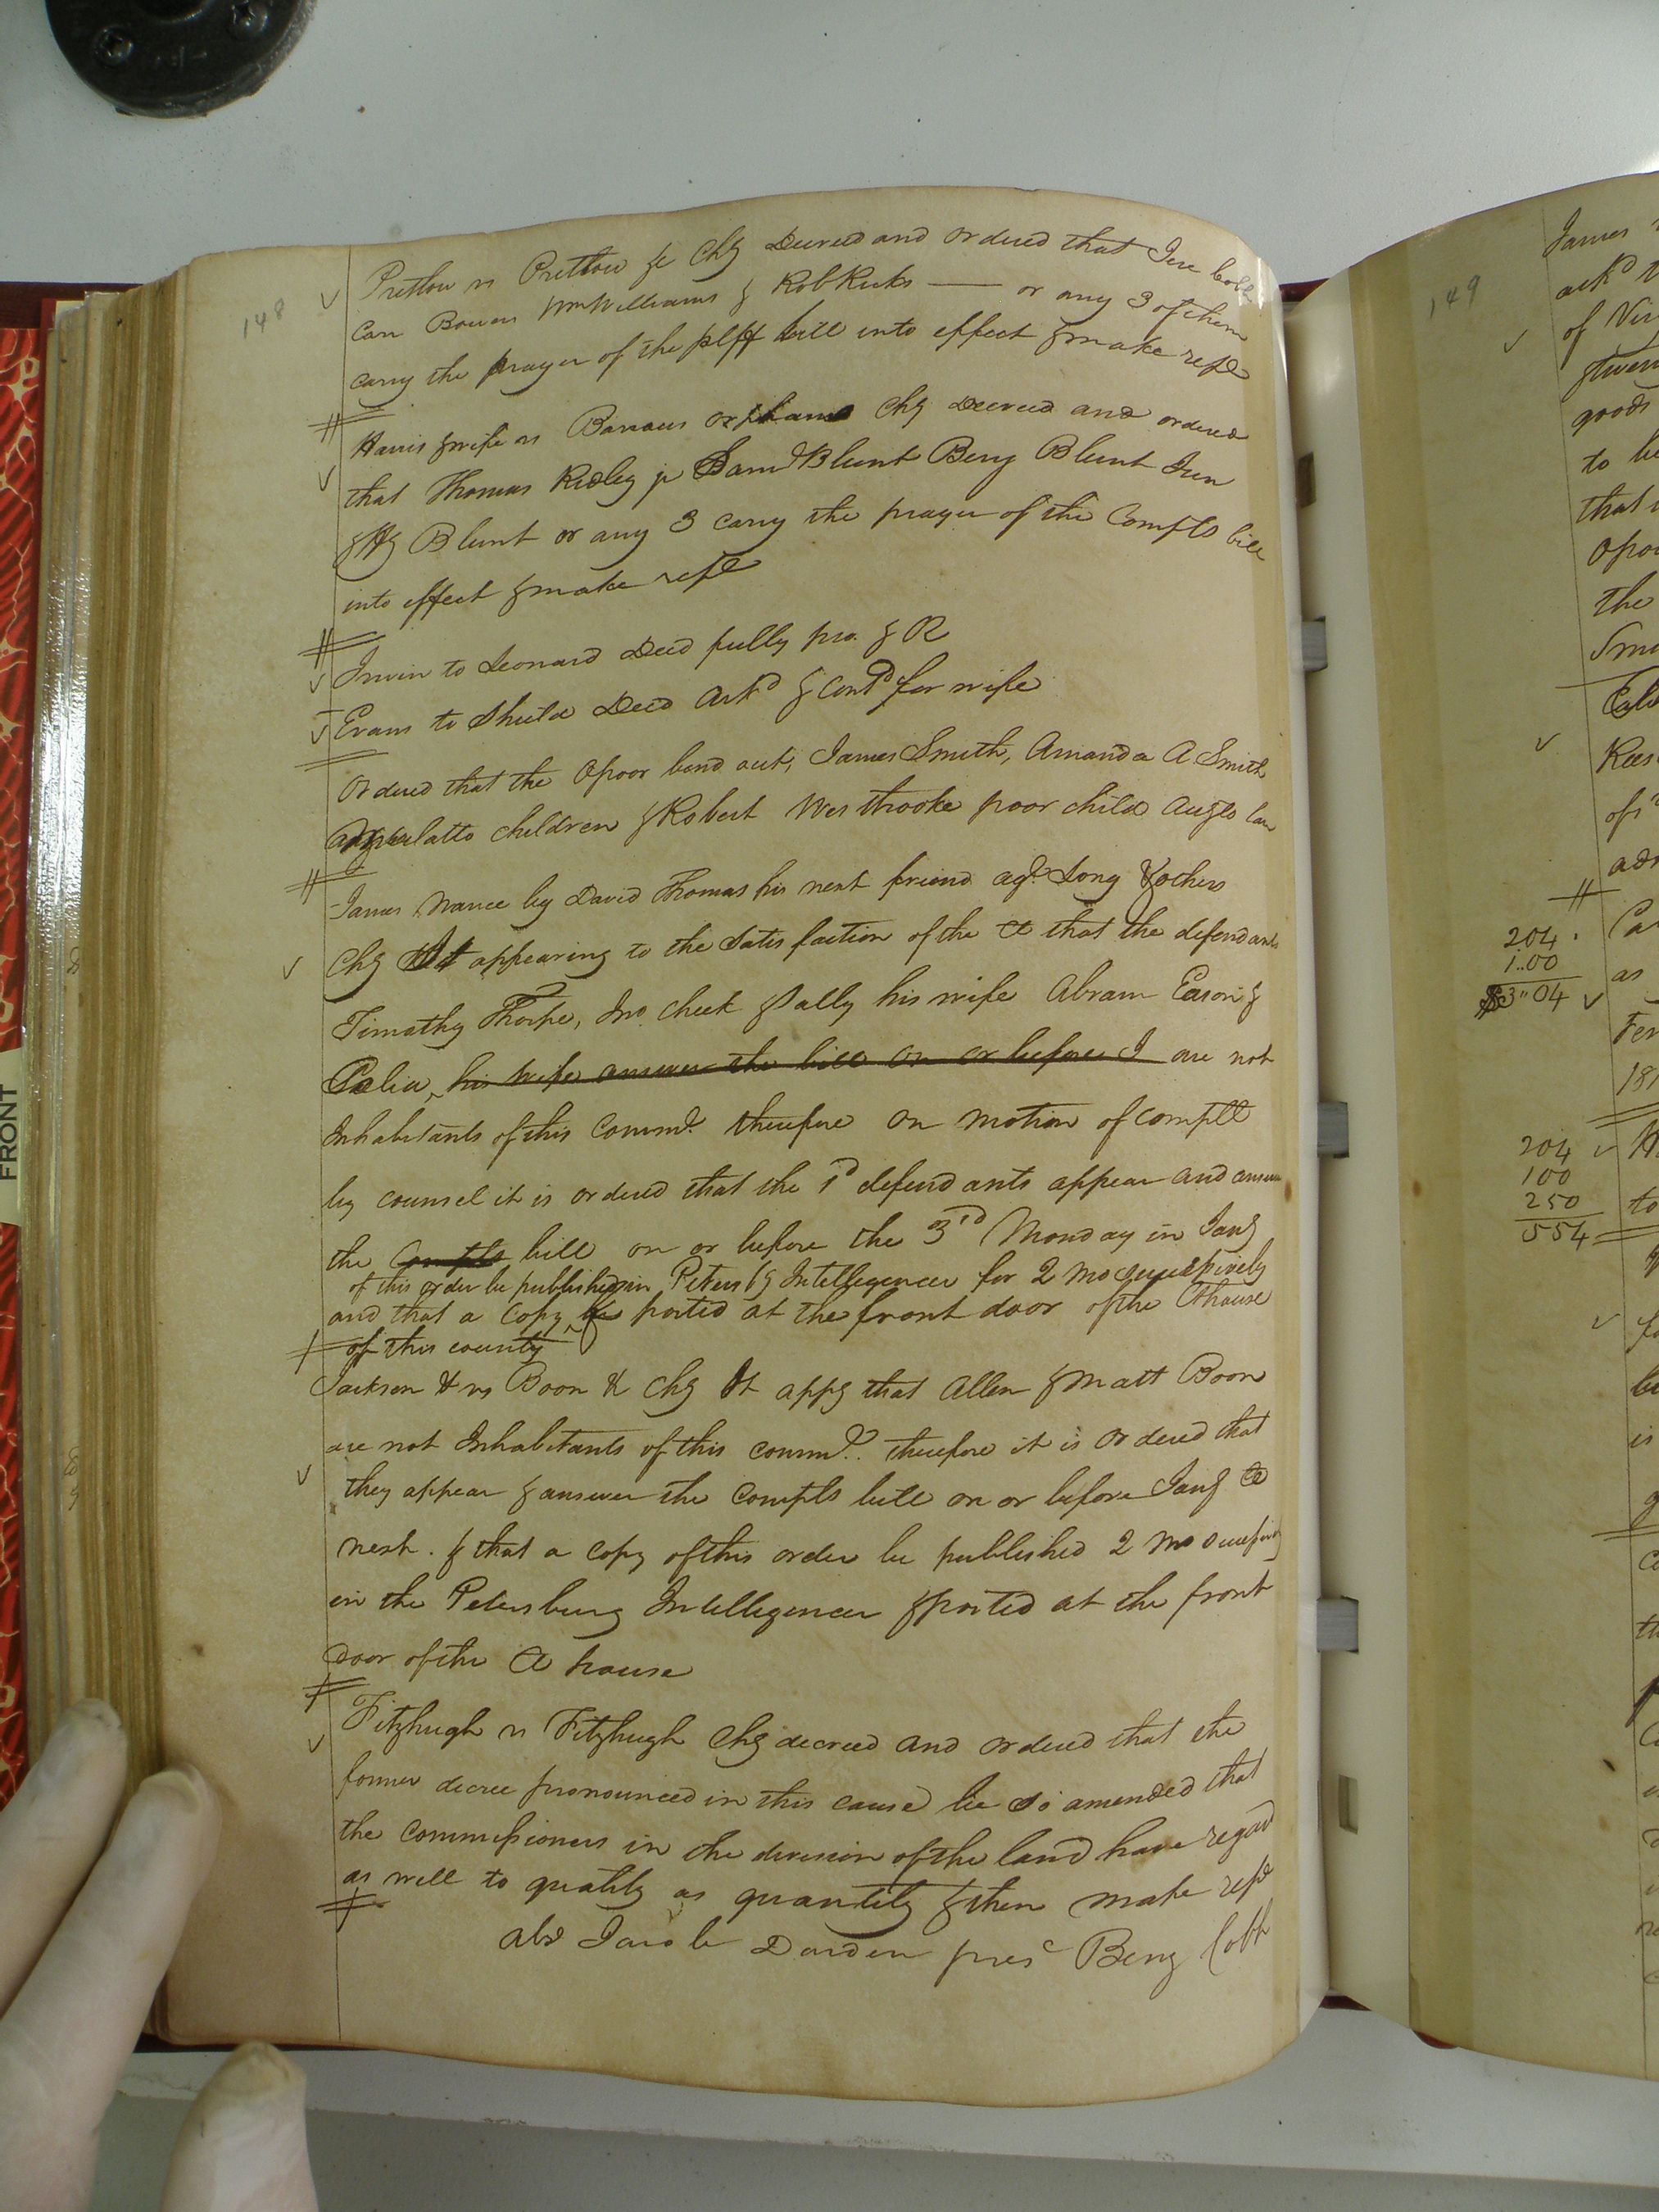 148
Pretlow vs Pretlow &c Chy Decreed and ordered that Jere Cobb
Carr Bowers Wm Williams & Rob Ricks — or any 3 of them
carry the prayer of the plff bill into effect & make rept
Harris & wife vs Barrows orphans Chy Decreed and ordered
that Thomas Ridley jr Saml Blunt Benj Blunt Jun
& Hy Blunt or any 3 carry the prayer of the Complts bill
into effect & make rept
Irwin to Leonard Deed fully pro. & R
Evans to Shield Deed Ackd & Contd for wife
Ordered that the Opoor bind out, James Smith, Amanda A Smith
mulatto children & Robert Westbrooke poor child
James Nance by David Thomas his next friend agt Long & others
Chy It appearing to the satisfaction of the Ct that the defendants
Timothy Thorpe, Jno. Cheek & Sally his wife Abram Eason &
Celia, his wife answer the bill on or before J are not
Inhabitants of this Commd. therefore on motion of complt
by counsel it is ordered that the sd defendants appear and answer
the Complts bill on or before the 3rd Monday in Jany
of this order be published in Petersbg Intelligencer for 2 mo successively
and that a copy be posted at the front door of the Cthouse
of this county
Jackson & vs Boon & Chy It appg that Allen & Matt Boon
are not Inhabitants of this commd.. therefore it is ordered that
they appear & answer the Complts bill on or before Jany Ct
next. & that a copy of this order be published 2 mo
in the Petersburg Intelligencer & posted at the front
door of the Ct house
Fitzhugh vs Fitzhugh Chy decreed and ordered that the
former decree pronounced in this cause be so amended that
the commissioners in the division of the land have regard
as well to quality as quantity & then make rept
abs Jacob Darden prest Benj Cobb
149
James
ackd
of Vir
given
goods
to be
that
Opoor
the
Smi
Rees
of
adm
204.
1..00
$3"04
as
181
204
100
250
554
to
is
FRONT